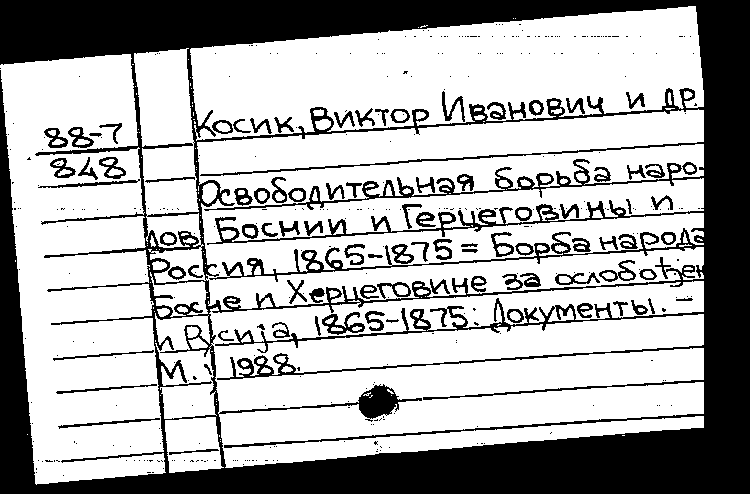 88-7
848
Косик, Виктор Иванович и др.
Освободительная борьба наро-
дов Боснии и Герцеговины и
Россия, 1865-1875 = Борба народа
Босне и Херцеговине за ослобођен
и Русија, 1865-1875: Документы. –
М., 1988.